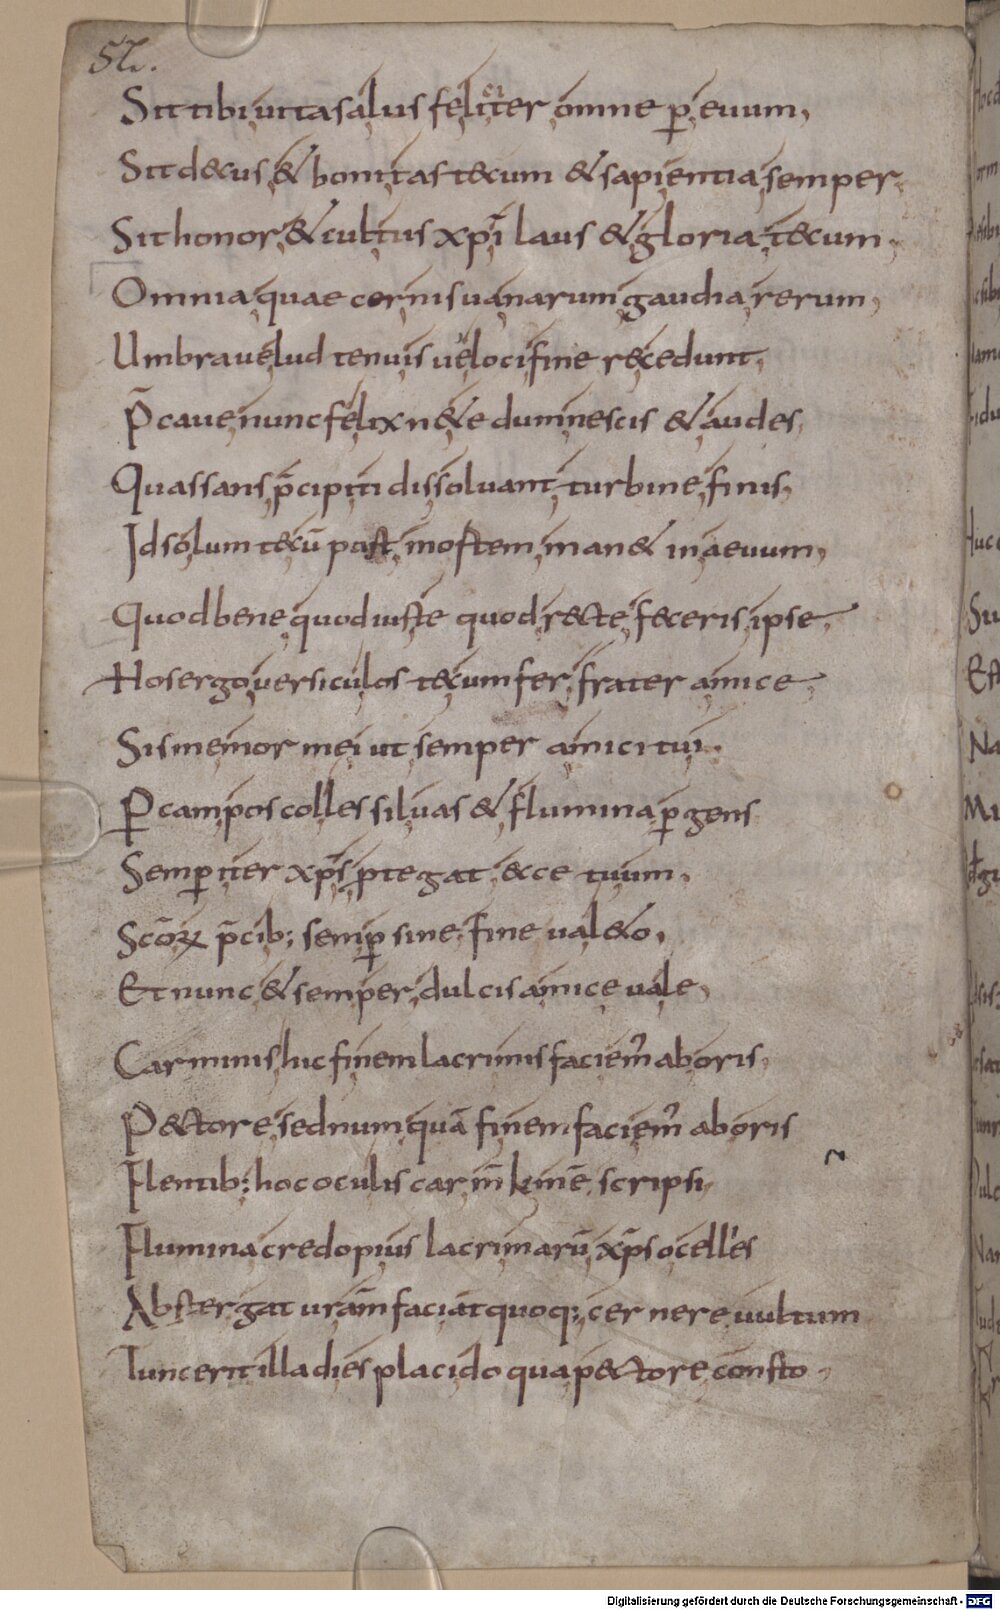 52.
Sit tibi uita salus feliciter omne p̱ euum,
Sit decus & bonitas tecum & sapientia semper,
Sit honor & cultus xp̄i laus & gloria tecum,
Omnia quae cernis uanarum gaudia rerum,
Umbra uelud tenuis ueloci fine recedunt,
P̄caue nunc felix n& e dum nescis & audes,
Quassans p̄cipiti dissoluant turbine finis,
Id solum tecū post mortem man& in aeuum,
Quod bene quod iuste quod recte feceris ipse,
Hos ergo uersiculos tecum fer frater amice,
Sis memor mei ut semper amici tui.
P̱ campos colles siluas & flumina p̱gens
Semp̱ iter xp̄s ptegat ecce tuum,
Scōꝝ p̄cib; semp̱ sine fine ual&o,
Et nunc & semper dulcis amice uale,
Carminis hic finem lacrimis faciem᷒ ab oris,
Pectore sed numquā finem faciem᷒ ab oris
Flentib; hoc oculis carm̄ scripsi,
Flumina credo pius lacrimarū xp̄s ocellis
Abstergat uram̄ faciat quoq; cernere uultum
Tunc erit illa dies placido qua pectore consto,
Digitalisierung gefördert durch die Deutsche Forschungsgemeinschaft - DFG